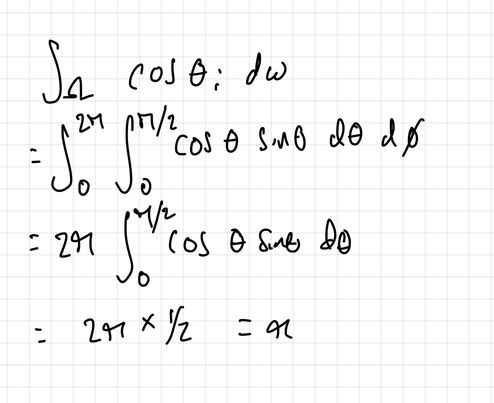 ∫_Ω cos θ_i dω
= ∫_0^{2π} ∫_0^{π/2} cos θ sinθ dθ dϕ
= 2π ∫_0^{π/2} cos θ sinθ dθ
= 2π × 1/2 = π